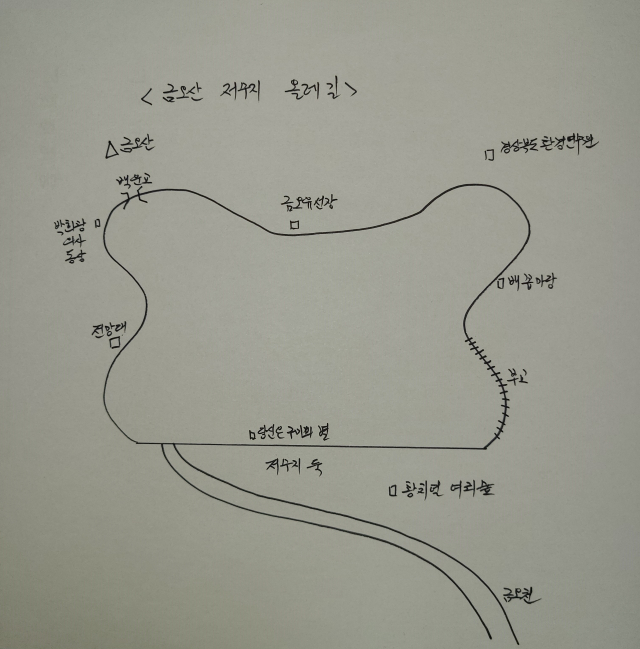 < 금오산 저수지 올레길 >
금오산
경상북도환경연수원
백운교
금오유선장
박희광
여사
동상
배꼽마당
전망대
부교
당신은 구미의 별
저수지 둑
황치열 여리숲
금오천